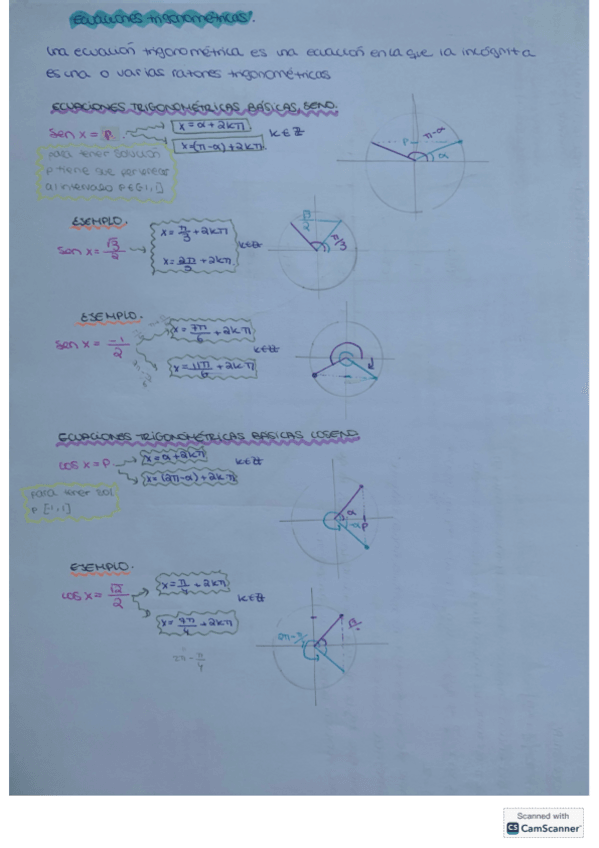 Ecuaciones trigonométricas.
Una ecuación trigonométrica es una ecuación en la que la incógnita
es una o varias razones trigonométricas
ECUACIONES TRIGONOMÉTRICAS BÁSICAS, SENO.
Sen x = P → x = α + 2kπ
x = (π-α) + 2kπ k∈ℤ
Para tener solución
P tiene que pertenecer
al intervalo P∈[-1,1]
P π-α α
EJEMPLO.
Sen x = √3/2 → x = π/3 + 2kπ
x = 2π/3 + 2kπ k∈ℤ
√3/2 π/3
EJEMPLO.
Sen x = -1/2 x = 7π/6 + 2kπ
x = 11π/6 + 2kπ k∈ℤ
ECUACIONES TRIGONOMÉTRICAS BÁSICAS COSENO
cos x = P → x = α + 2kπ
x = (2π-α) + 2kπ k∈ℤ
para tener sol
P [-1,1]
α -α P
EJEMPLO.
cos x = √2/2 x = π/4 + 2kπ
x = 7π/4 + 2kπ k∈ℤ
2π - π/4
Scanned with
CS CamScanner